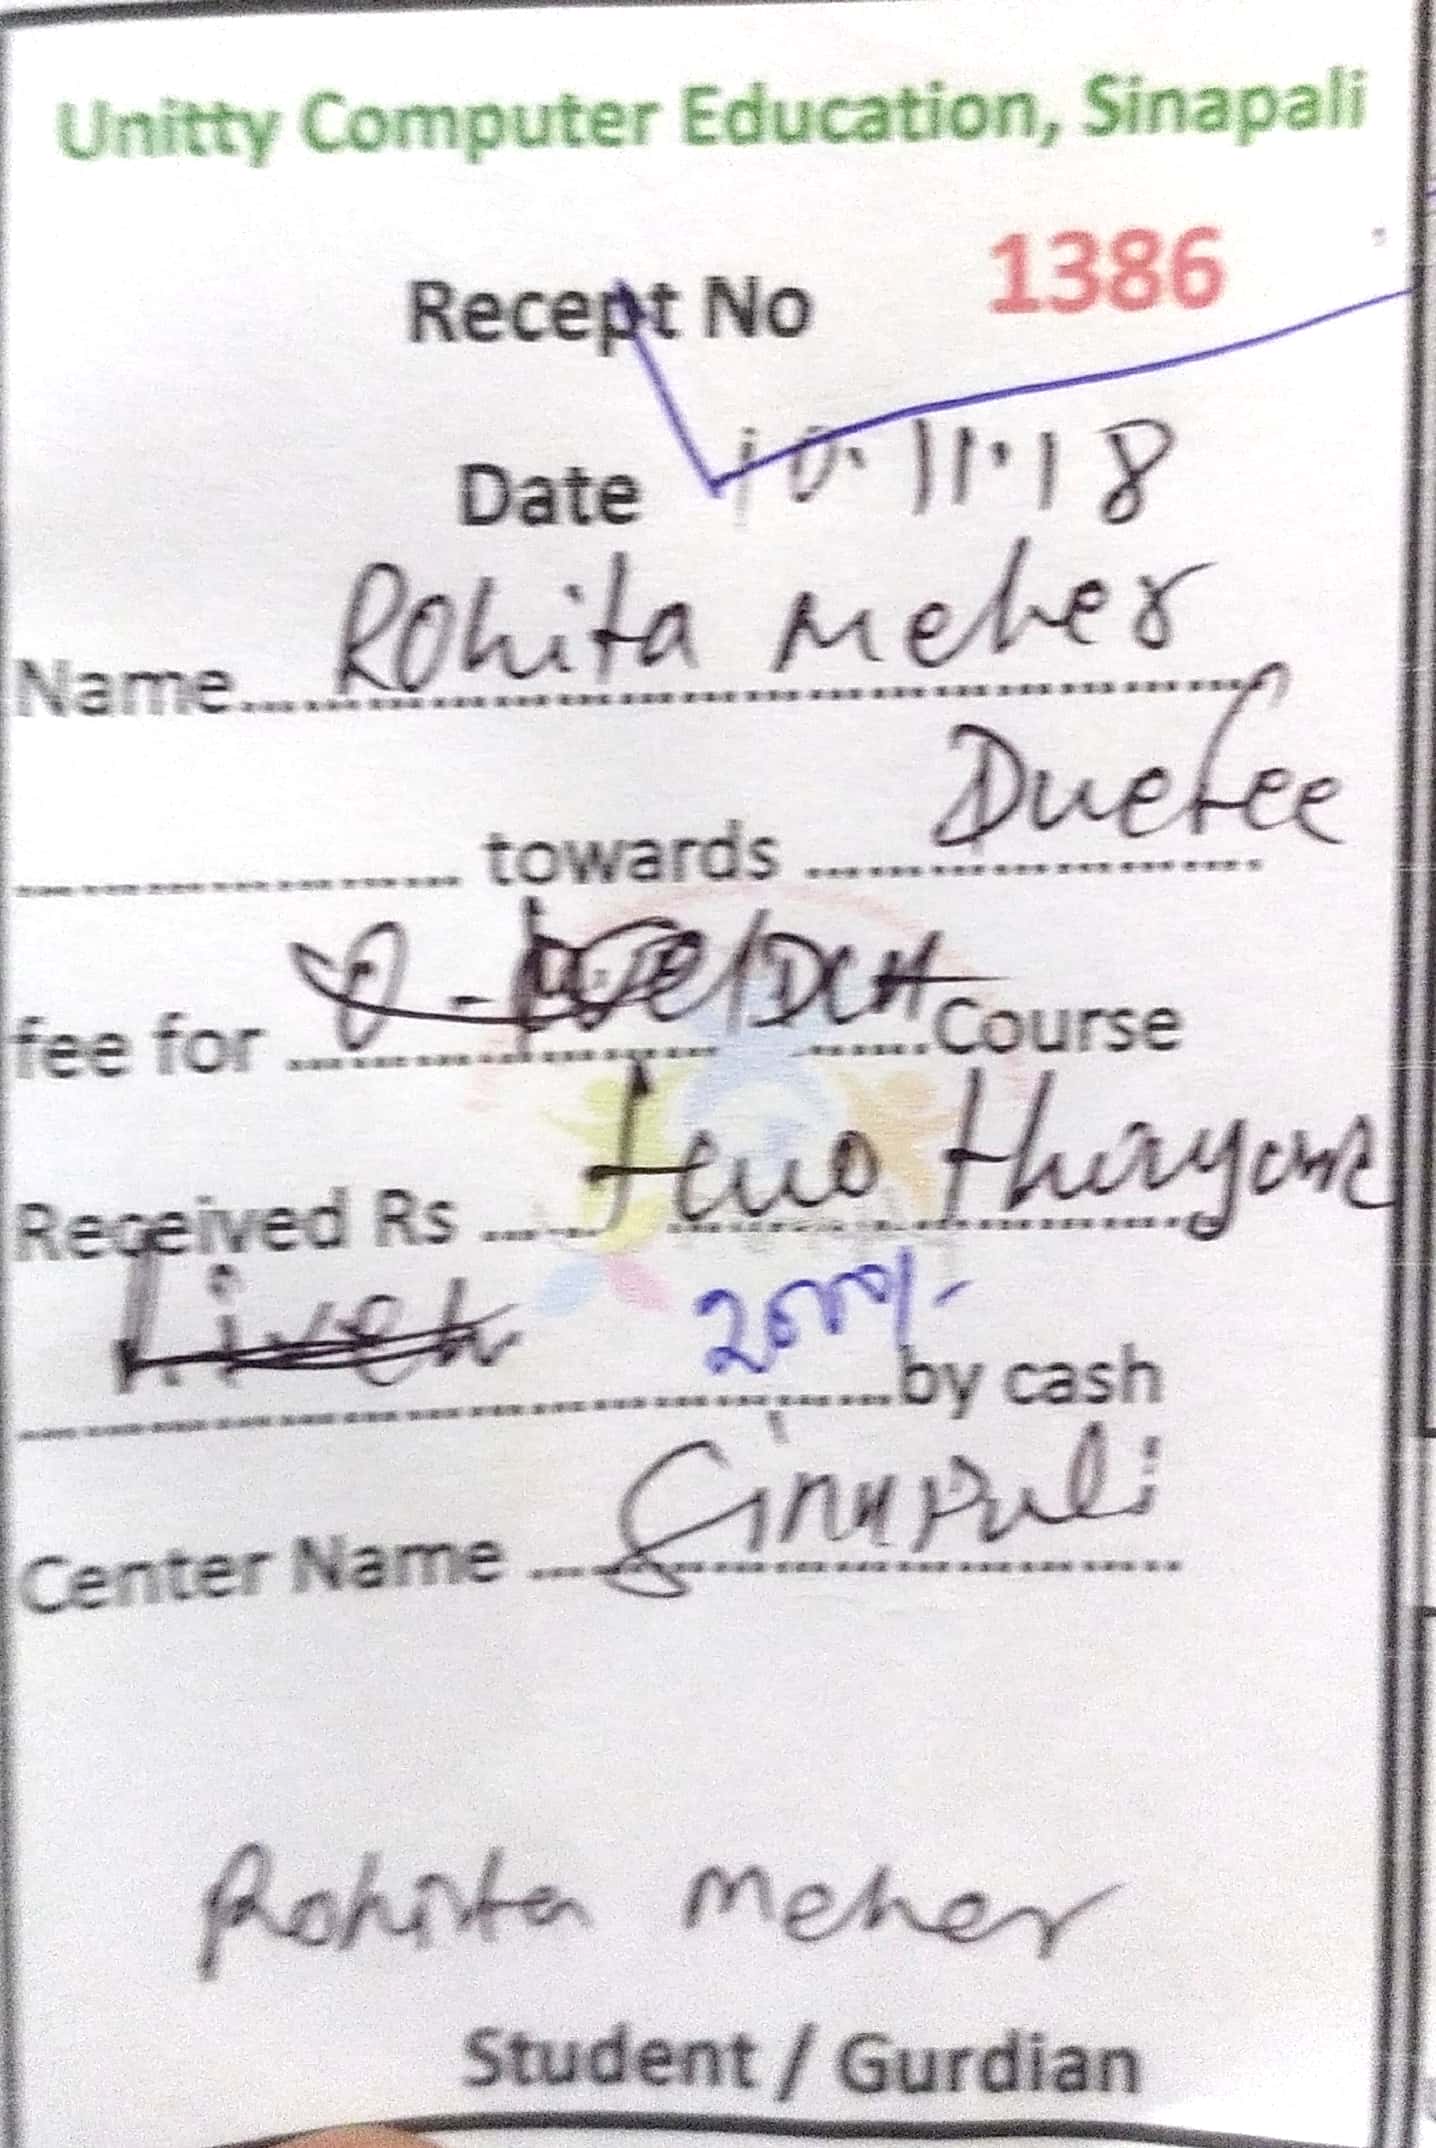 Unitty Computer Education, Sinapali
Recept No 1386
Date 10.11.18
Name Rohita Meher
towards Due fee
fee for /DCA Course
Received Rs two
2000/- by cash
Center Name Sinapali
Rohita Meher
Student / Gurdian